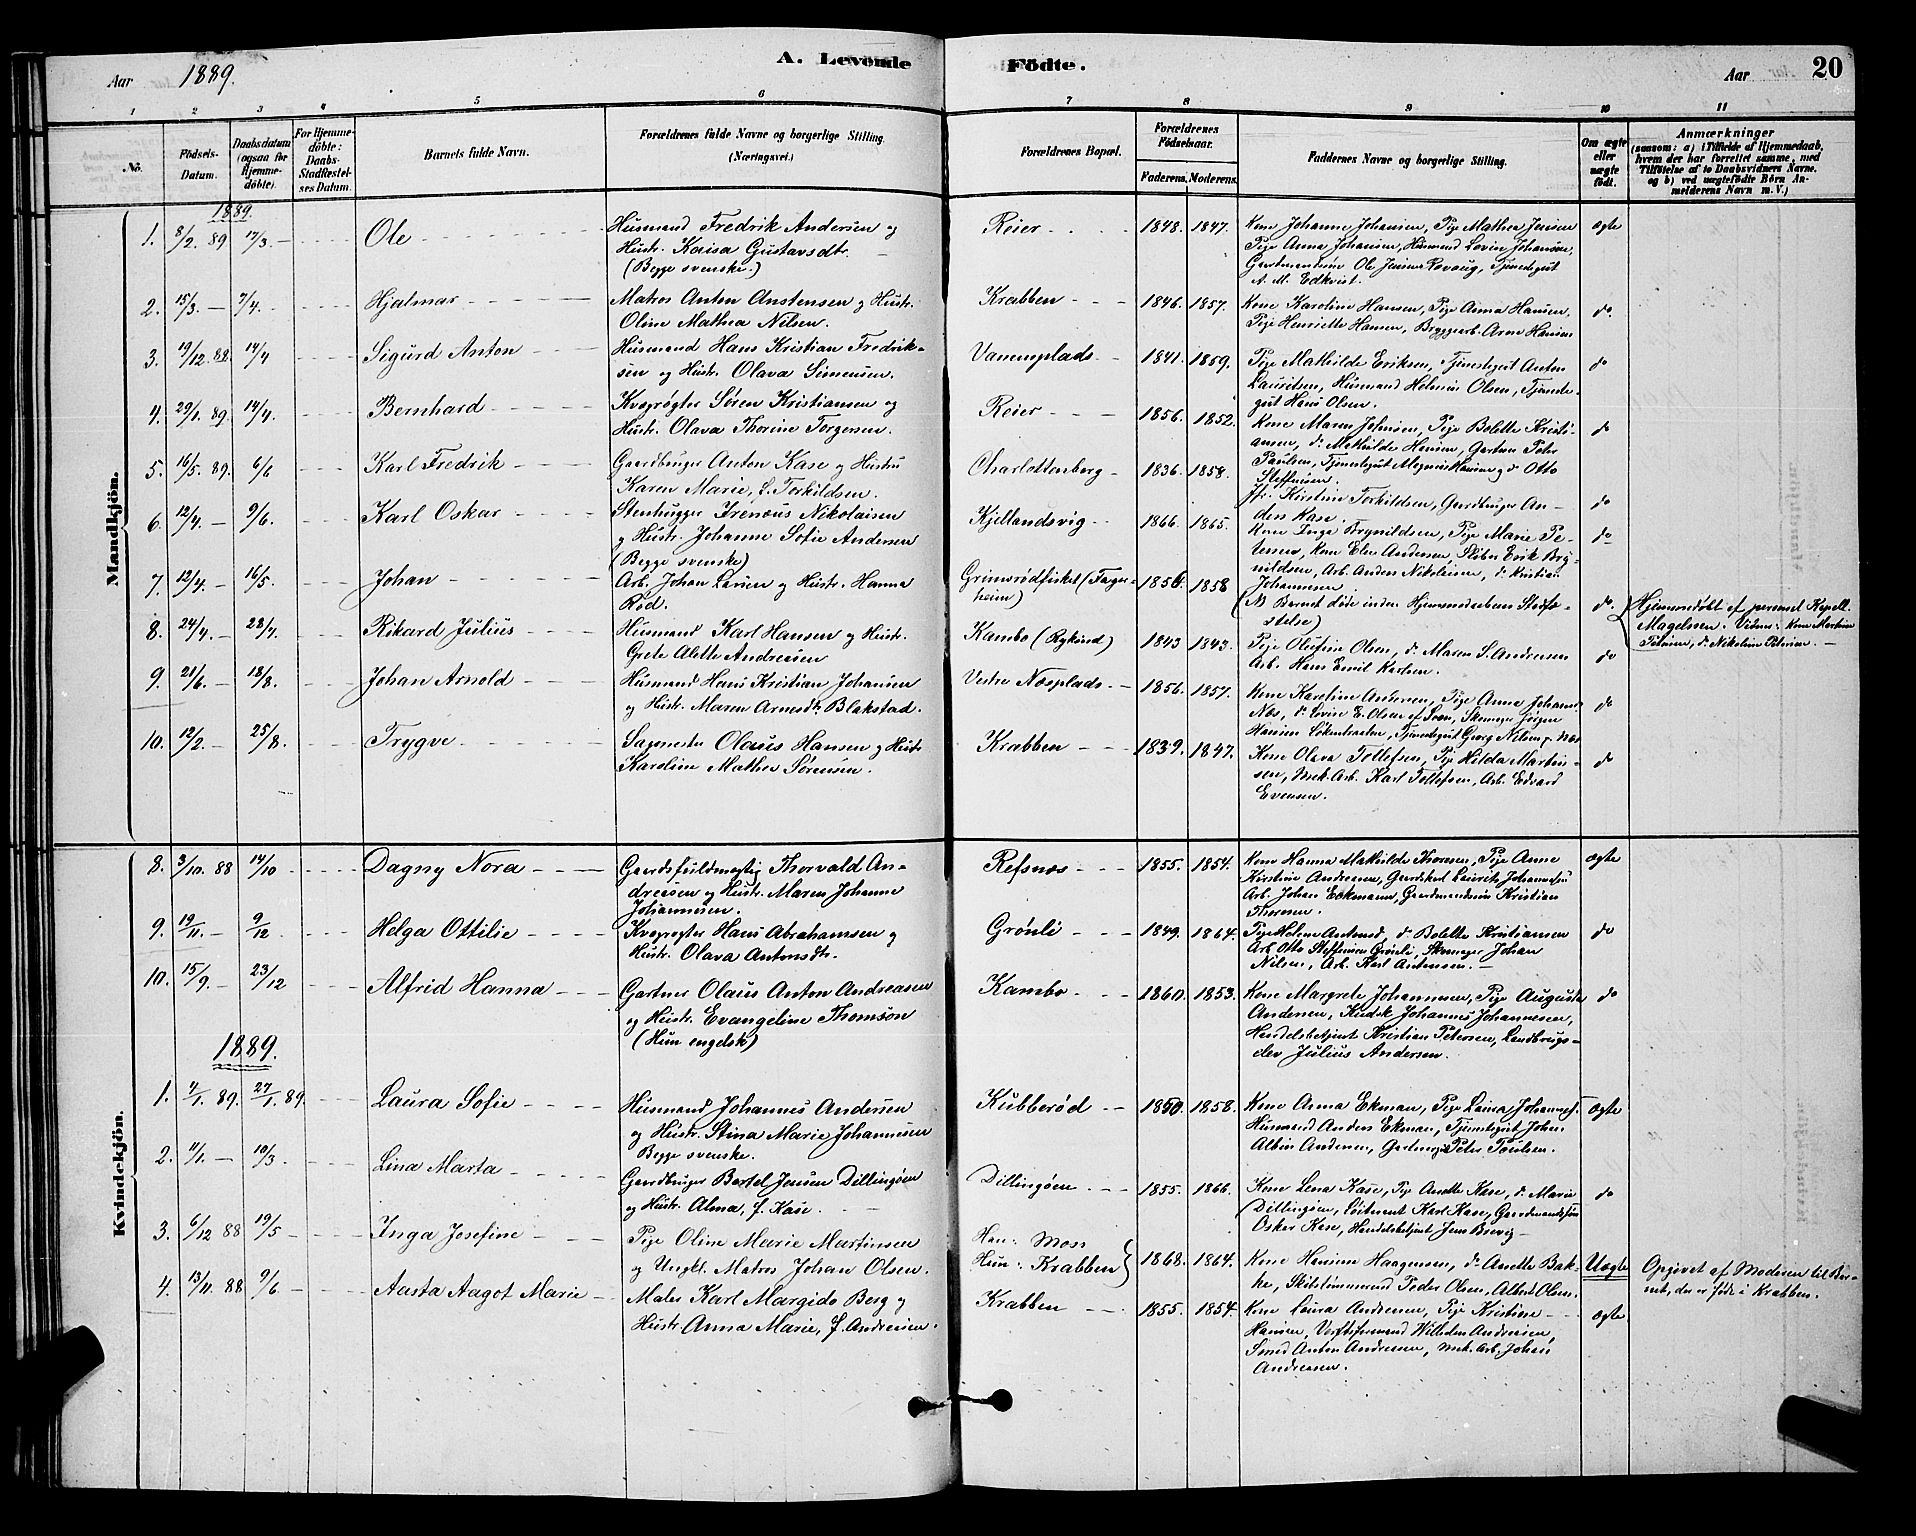 Aar 1889.
A. Levende Födte.
Aar
20
1 2 3 4 5 6 7 8 9 10 11
No.
Födsels-Datum.
Daabsdatum (ogsaa for Hjemme-döbte).
For Hjemme-döbte: Daabs-Stadfæstel-ses Datum.
Barnets fulde Navn.
Forældrenes fulde Navne og borgerlige Stilling.
(Næringsvei.)
Forældrenes Bopæl.
Forældrenes Födselsaar.
Faderens. Moderens.
Faddernes Navne og borgerlige Stilling.
Om ægte eller uægte födt.
Anmærkninger
(saasom: a) i Tilfælde af Hjemmedaab, hvem der har forrettet samme, med Tilföielse af to Daabsvidners Navne. og b) ved uægtefödte Börn Anmelderens Navn m. V.)
Mandkjön.
1889.
1. 8/2. 89 17/3. Ole
Husmand Fredrik Andersen og
Hustr. Kaisa Gustavsdt.
(Begge svenske.)
Reier 1848. 1847.
Kone Johanne Johansen, Pige Mathea Jensen
Pige Anna Johansen, Husmand Lovin Johansen,
Gaardmandssøn Ole Jensen, Tjenestegut
A. M. Edkvist.
ægte
2. 15/3. 7/4. Hjalmar
Matros Anton Anstensen og Hustr.
Oline Mathea Nilsen.
Krabben 1846. 1857.
Kone Karoline Hansen, Pige Anna Hansen,
Pige Henriette Hansen, Bryggearb. Arne Hansen
do
3. 19/12 88. 14/4 Sigurd Anton
Husmand Hans Kristian Fredrik-
sen og Hustr. Olava Simensen.
Vanemplads 1841. 1859.
Pige Mathilde Eriksen, Tjenestegut Anton
Lauritsen, Husmand Helmer Olsen, Tjeneste-
gut Hans Olsen.
do
4. 29/1. 89. 14/4. Bernhard
Kvægrøgter Søren Kristiansen og
Hustr. Olava Thorine Torgersen.
Reier 1856. 1852.
Kone Maren Johnsen, Pige Bolette Kristi-
ansen, do Mathilde Hansen, Gartner Peter
Paulsen, Tjenestegut Magnus Hansen og do Otto
Steffensen.
do
5. 16/5. 89. 6/6 Karl Fredrik
Gaardbruger Anton Kase og Hustru
Karen Marie, f. Torkildsen.
Charlottenberg 1836. 1858.
Jfr. Kirstine Torkildsen, Gaardbruger An-
ders Kase.
do
6. 12/4. 9/6. Karl Oskar
Stenhugger Irenæus Nikolaisen
og Hustr. Johanne Sofie Andersen
(Begge svenske)
Kjellandsvig 1866. 1865.
Kone Inge Brynildsen, Pige Marie Pe-
tersen, Kone Elen Andersen, Sliber Erik Bry-
nildsen, Arb. Anders Nikolaisen, do Kristian
Johannesen
do
7. 12/4. 16/5. Johan
Arb. Johan Larsen og Hustr. Hanna
Rød.
Grimsrødfisket (Fager-
heim) 1856. 1858
(NB Barnet døde inden Hjemmedaabens Stadfæ-
stelse)
do.
Hjemmedøbt af personel Kapell.
Magelssen. Vidner: Kone Martine
Petersen, do Nikoline Petersen.
8. 24/4. 28/7. Rikard Julius
Husmand Karl Hansen og Hustr.
Grete Alette Andresen
Kambo (Rykind) 1843 1843.
Pige Olufine Olsen, do Maren S. Andresen
Arb. Hans Emil Karlsen.
do
9. 21/6. 18/8. Johan Arnold
Husmand Hans Kristian Johansen
og Hustr. Maren Arnesdt. Blakstad.
Vestre Næsplads 1856. 1857.
Kone Karoline Andersen, Pige Anna Johanns
Næs, do Lovise E. Olsen af Soon, Skomager Jørgen
Hansen, Tjenestegut Georg Nilsen p. Næs
do
10. 12/2. 25/8. Trygve
Sagmester Olaus Hansen og Hustr.
Karoline Mathea Sørensen.
Krabben 1839. 1847.
Kone Olava Tollefsen, Pige Hilda Martin-
sen, Mek. Arb. Karl Tollefsen, Arb. Edvard
Evensen.
do
Kvindekjön.
8. 3/10. 88 14/10 Dagny Nora
Gaardsfuldmegtig Thorvald An-
dresen og Hustr. Maren Johanne
Johannesen.
Refsnæs 1855. 1854.
Kone Hanna Mathilde Thoresen, Pige Anne
Kirstine Andresen, Gaardskarl Laurits Johannesen
Arb. Johan Eckmann, Gaardmandssøn Kristian
Thoresen.
ægte
9. 19/11. 9/12 Helga Ottilie
Kvægrøgter Hans Abrahamsen og
Hustr. Olava Antonsdtr.
Grønli 1849. 1864.
Pige Helene Antonsd, do Bolette Kristiansen
Arb. Otto Steffensen Grønli, Skomager Johan
Nilsen, Arb. Karl Antonsen.
do
10. 15/9. 23/12 Alfrid Hanna
Gartner Olaus Anton Andreasen
og Hustr. Evangeline Thomson
(Hun engelsk)
Kambo 1860. 1853.
Kone Margrete Johannesen, Pige Augusta
Andersen, Kudsk Johannes Johannesen,
Handelsbetjent Kristian Petersen, Landbrugs-
elev Julius Andersen.
do
1889.
1. 7/1. 89. 27/1. 89. Laura Sofie
Husmand Johannes Andersen
og Hustr. Stina Marie Johannesen
Begge svenske.
Kubberød 1850. 1858.
Kone Anna Ekman, Pige Laura Johannes.
Husmand Anders Ekman, Tjenestegut Johan
Albin Andersen, Gartner Peter Poulsen.
ægte
2. 11/1. 10/3. Lina Marta
Gaardbruger Bertel Jensen Dillingøen
og Hustr. Alma, f. Kase.
Dillingøen 1855. 1866.
Kone Lena Kase, Pige Anette Kase, do Marie
Dillingøen, Løitenant Karl Kase, Gaardmandssøn
Oskar Kase, Handelsbetjent Jens Brevig
do
3. 6/12 88 19/5. Inga Josefine
Pige Oline Marie Martinsen
og Ungkl. Matros Johan Olsen.
Han: Moss
Hun: Krabben
1868. 1864.
Kone Hansine Haagensen, do Anette Bak-
ke, Skibstømmermand Peder Olsen, Albert Olsen.
Uægte
Opgivet af Moderen til Bar-
net, der er født i Krabben.
4. 13/11. 88 9/6. Aasta Aagot Marie
Maler Karl Margido Berg og
Hustr. Anna Marie, f. Andresen.
Krabben 1855. 1854.
Kone Laura Andresen, Pige Kristine
Hansen, Verftsformand Wilhelm Andresen,
Smed Anton Andresen, Mek. Arb. Johan
Andreasen.
ægte